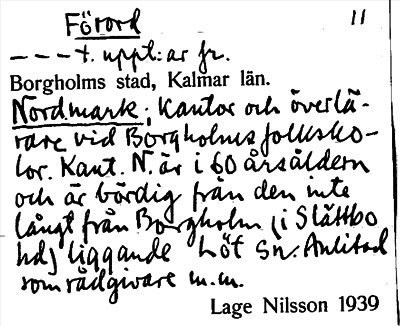 Förord 11
– – – t. uppt:ar fr.
Borgholms stad, Kalmar län.
Nordmark; Kantor och överlä-
rare vid Borgholms folksko-
lor. Kant. N. är i 60 årsåldern
och är bördig från den inte
långt från Borgholm (i Slättbo
hd) liggande Löt sn. Anlitad
som rådgivare m.m.
Lage Nilsson 1939